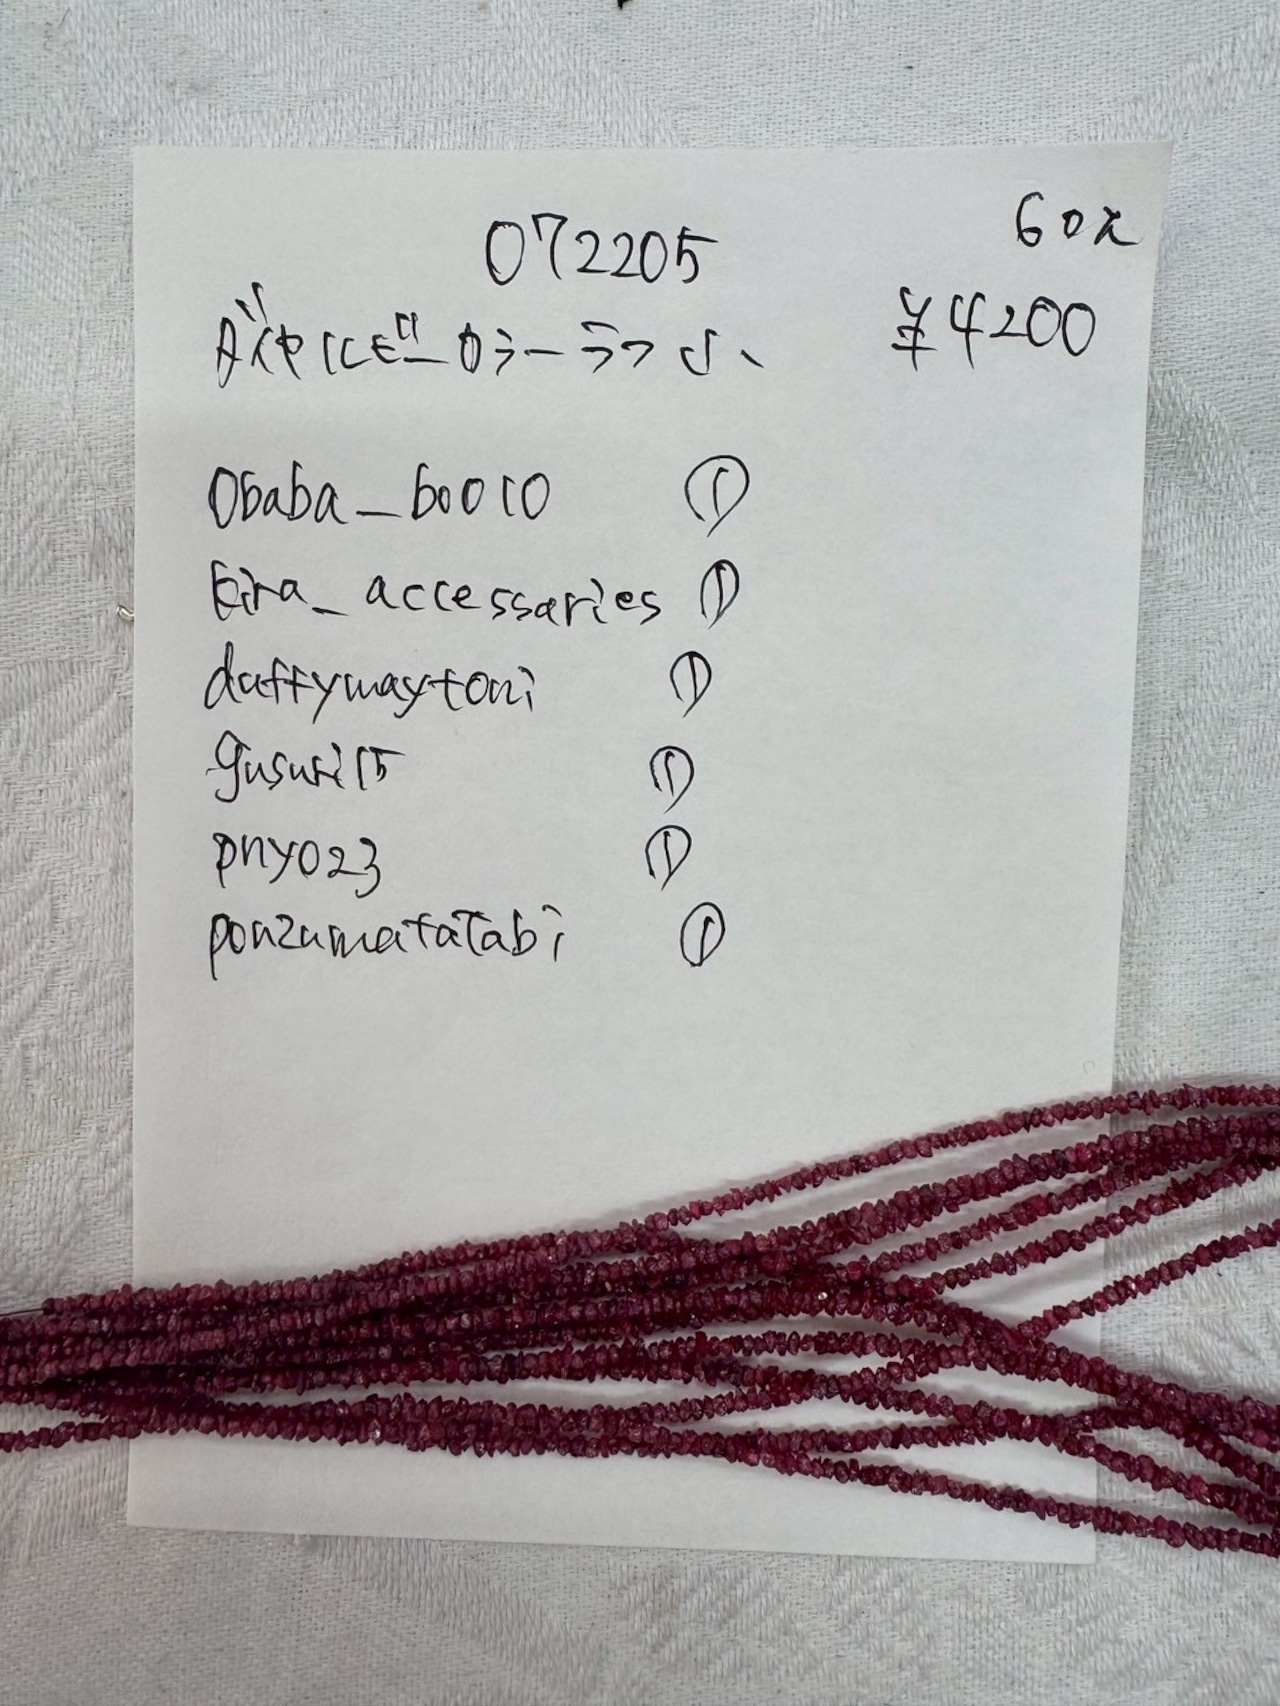 072205
60%
¥4200
ダイヤルビーカラーラフ
Obaba_b0010 ①
kira_accessaries ①
daffymaytoni ①
gusuri15 ①
pny023 ①
ponzumatatabi ①